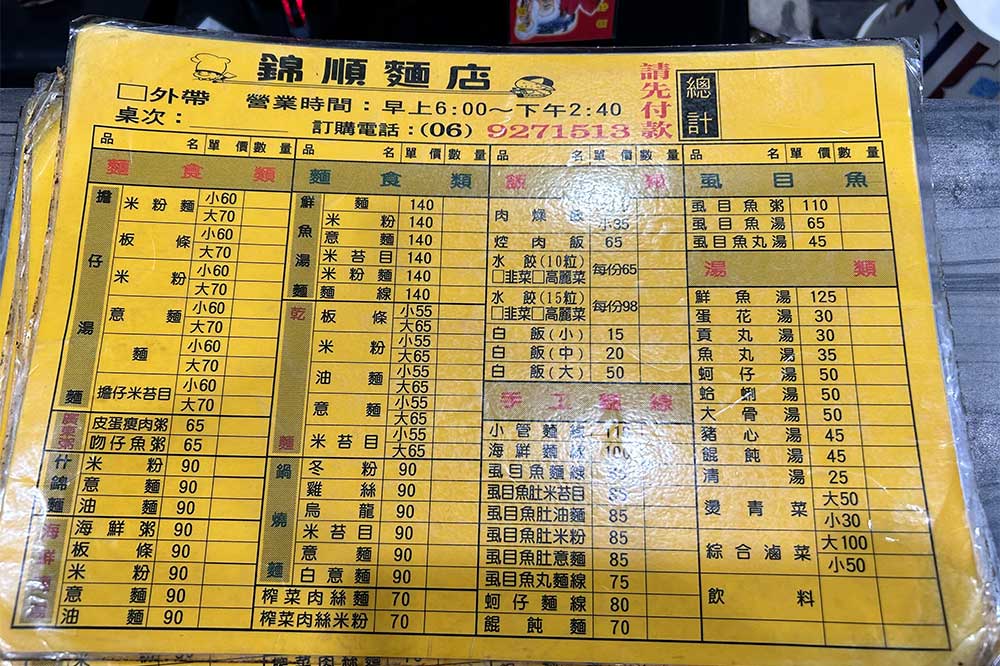 錦順麵店
請先付款
總計
□外帶
營業時間：早上6:00～下午2:40
桌次：
訂購電話：(06) 9271513
品名 單價 數量 品名 單價 數量 品名 單價 數量 品名 單價 數量
麵食類
擔仔湯麵
米粉麵 小60
大70
板條 小60
大70
米粉 小60
大70
意麵 小60
大70
麵 小60
大70
擔仔米苔目 小60
大70
廣東粥
皮蛋瘦肉粥 65
吻仔魚粥 65
什錦麵
米粉 90
意麵 90
油麵 90
海鮮
海鮮粥 90
板條 90
米粉 90
意麵 90
油麵 90
麵食類
鮮魚湯麵
麵 140
米粉 140
意麵 140
米苔目 140
米粉麵 140
麵線 140
乾麵
板條 小55
大65
米粉 小55
大65
油麵 小55
大65
意麵 小55
大65
米苔目 小55
大65
鍋燒麵
冬粉 90
雞絲 90
烏龍 90
米苔目 90
意麵 90
白意麵 90
榨菜肉絲麵 70
榨菜肉絲米粉 70
飯類
肉燥飯
小35
焢肉飯 65
水餃(10粒) 每份65
□韭菜□高麗菜
水餃(15粒) 每份98
□韭菜□高麗菜
白飯(小) 15
白飯(中) 20
白飯(大) 50
手工麵線
小管麵線
海鮮麵線 100
虱目魚麵線
虱目魚肚米苔目 85
虱目魚肚油麵 85
虱目魚肚米粉 85
虱目魚肚意麵 85
虱目魚丸麵線 75
蚵仔麵線 80
餛飩麵 70
虱目魚
虱目魚粥 110
虱目魚湯 65
虱目魚丸湯 45
湯類
鮮魚湯 125
蛋花湯 30
貢丸湯 30
魚丸湯 35
蚵仔湯 50
蛤蜊湯 50
大骨湯 50
豬心湯 45
餛飩湯 45
清湯 25
燙青菜 大50
小30
綜合滷菜 大100
小50
飲料